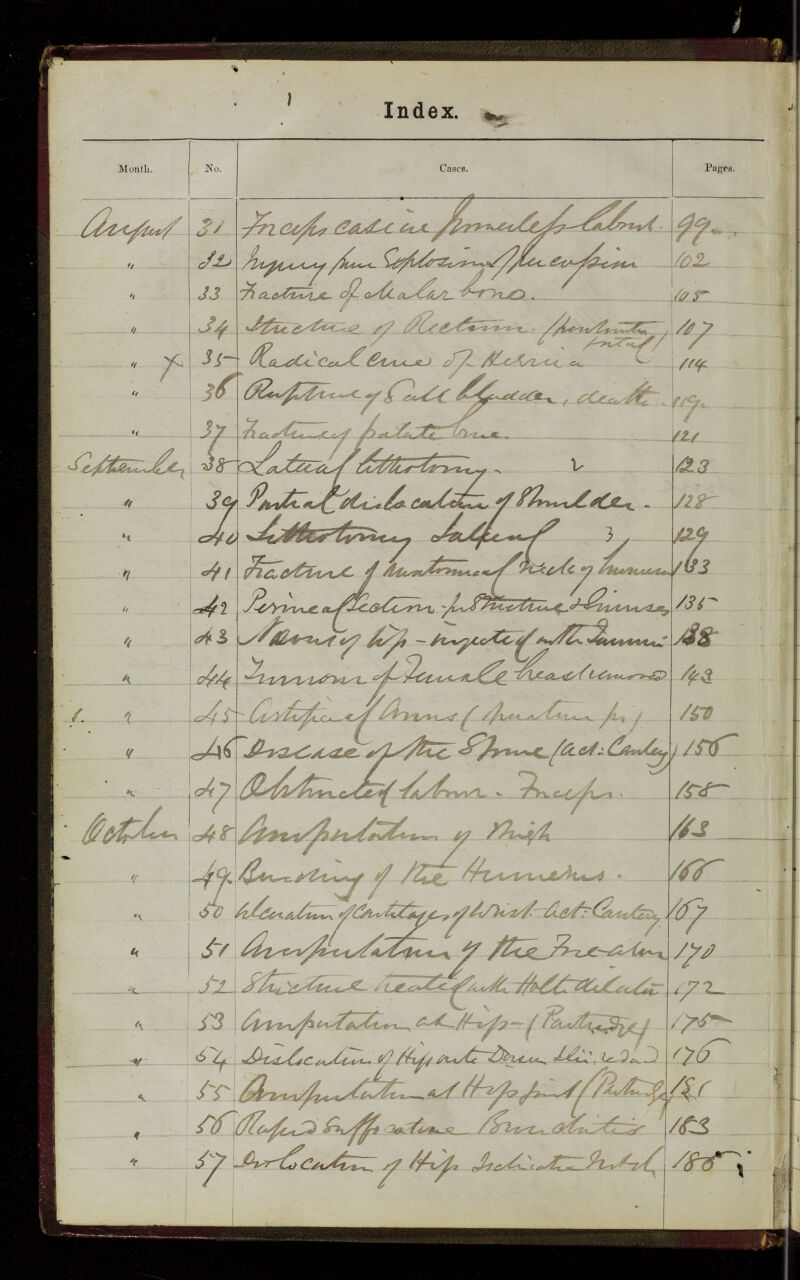 Index.
Month. No. Cases. Pages.
August 31 Forceps case in Powerless labour. 99
" 32 Injury from Explosion of percussion 102
" 33 Fracture of Malar bone. 105
" 34 Stricture of Rectum 107
" X 35 Radical cure of Hernia 114
" 36 Rupture of Gall bladder, death. 119
" 37 Fracture of palate bone. 121
September 38 Lateral lithotomy. 2 123
" 39 Partial dislocation of Shoulder. 128
" 40 Lithotomy Lateral 3 129
" 41 Fracture of anatomical neck of humerus 133
" 42 Perineal Section - for Stricture & Sinuses 135
" 43 Naevus of lip - injected with Tannin 138
" 44 Tumour of Female breast removed 143
" 45 Artificial Anus (operation for) 150
" 46 Disease of the Spine (Act: Cautery) 156
" 47 Obstructed labour - Forceps. 158
October 48 Amputation of Thigh 163
" 49 Bending of the Humerus. 166
" 50 Ulceration of Cartilages of Wrist - Act: Cautery 167
" 51 Amputation of the Forearm 170
" 52 Stricture treated with Holts dilator 172
" 53 Amputation at Hip - (Partridge) 175
" 54 Dislocation of Hip onto Dorsum Ilii. reduced 176
" 55 Amputation at Hip joint (Partridge) 181
" 56 Rapid Suffocative Bronchitis 183
" 57 Dislocation of Hip Ischiatic Notch 185